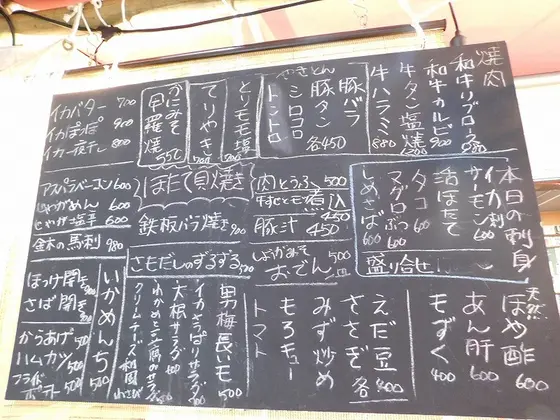 焼肉
和牛リブロース 900
和牛カルビ 900
牛タン塩焼
牛ハラミ 880
やきとん
豚バラ
豚タン
シロコロ
トントロ
各450
とりモモ塩 500
てりやき 500
かにみそ
甲羅焼 550
イカバター 700
イカぽっぽ 900
イカ一夜干し 800
本日の刺身
イカ刺
サーモン 600
活ほたて
タコ 600
マグロぶつ 600
しめさば 600
盛り合せ
肉とうふ 500
牛もつ煮込 450
豚汁 450
ほたて貝焼き
鉄板バラ焼き 900
アスパラベーコン 600
じゃがめん 600
じゃが塩辛 600
金木の馬刺 980
天然
ほや酢 600
あん肝 600
もずく 400
しょうがみそ
おでん 500
さもだしのずるずる 500
えだ豆
ささぎ
みず炒め
もろキュー
トマト
各400
男梅長いも 500
イカさっぱりサラダ 500
大根サラダ 400
わかめと豆腐のサラダ
クリームチーズ
いかめんち 500
ほっけ開き
さば開き
からあげ 500
ハムカツ 500
フライド
ポテト 500